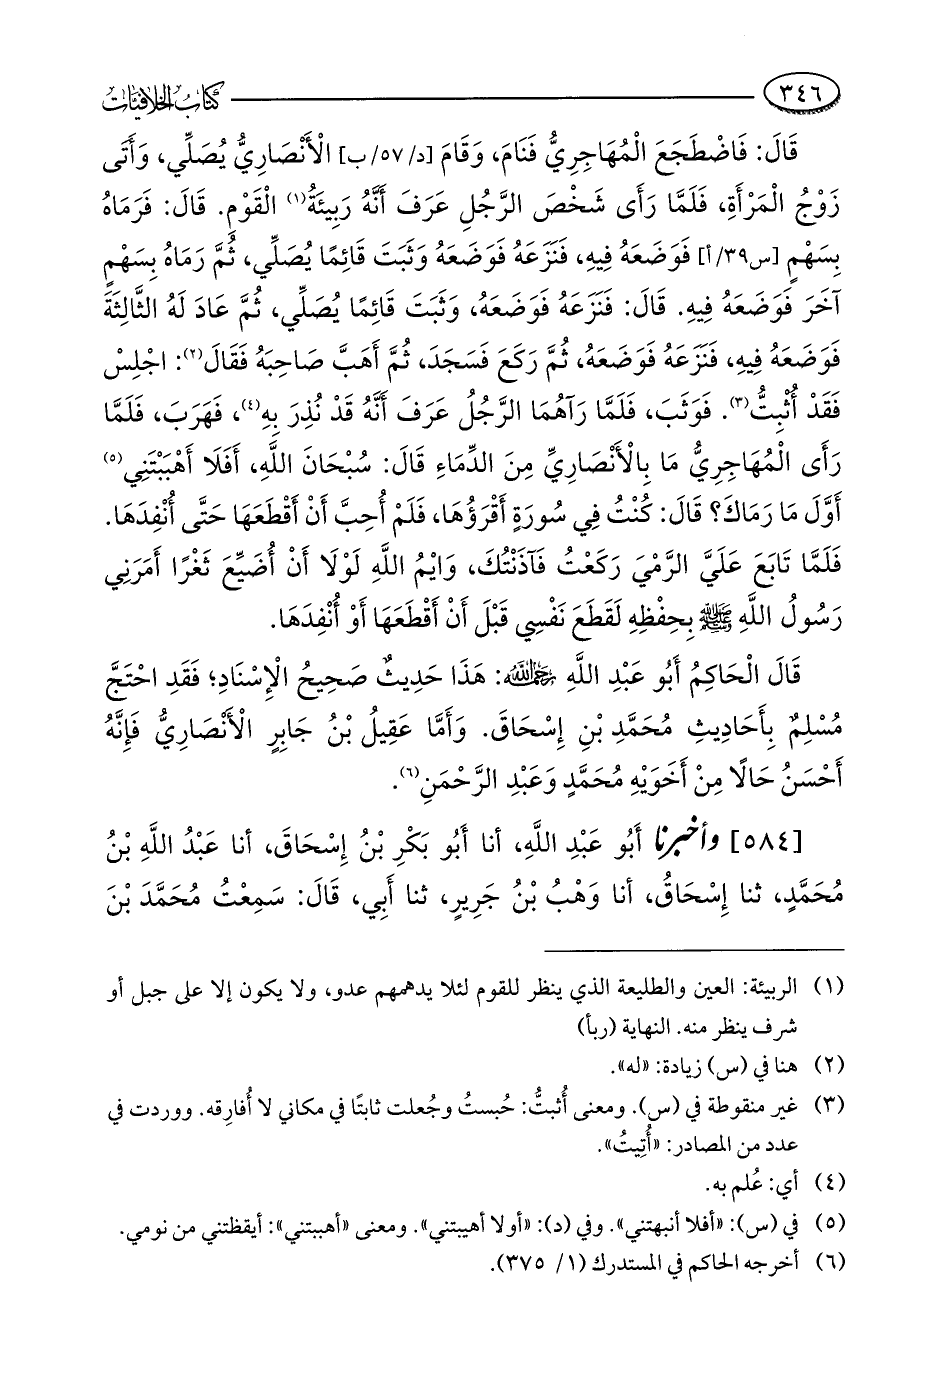 ٣٤٦ كتاب الخلافيات
قَالَ: فَاضْطَجَعَ الْمُهَاجِرِيُّ فَنَامَ، وَقَامَ [د/ ٥٧/ ب] الْأَنْصَارِيُّ يُصَلِّي، وَأَتَى
زَوْجُ الْمَرْأَةِ، فَلَمَّا رَأَى شَخْصَ الرَّجُلِ عَرَفَ أَنَّهُ رَبِيئَةُ(١) الْقَوْمِ. قَالَ: فَرَمَاهُ
بِسَهْمٍ [س٣٩/ أ] فَوَضَعَهُ فِيهِ، فَنَزَعَهُ فَوَضَعَهُ وَثَبَتَ قَائِمًا يُصَلِّي، ثُمَّ رَمَاهُ بِسَهْمٍ
آخَرَ فَوَضَعَهُ فِيهِ. قَالَ: فَنَزَعَهُ فَوَضَعَهُ، وَثَبَتَ قَائِمًا يُصَلِّي، ثُمَّ عَادَ لَهُ الثَّالِثَةَ
فَوَضَعَهُ فِيهِ، فَنَزَعَهُ فَوَضَعَهُ، ثُمَّ رَكَعَ فَسَجَدَ، ثُمَّ أَهَبَّ صَاحِبَهُ فَقَالَ(٢): اجْلِسْ
فَقَدْ أُثْبِتُّ(٣). فَوَثَبَ، فَلَمَّا رَآهُمَا الرَّجُلُ عَرَفَ أَنَّهُ قَدْ نُذِرَ بِهِ(٤)، فَهَرَبَ، فَلَمَّا
رَأَى الْمُهَاجِرِيُّ مَا بِالْأَنْصَارِيِّ مِنَ الدِّمَاءِ قَالَ: سُبْحَانَ اللَّهِ، أَفَلَا أَهْبَبْتَنِي(٥)
أَوَّلَ مَا رَمَاكَ؟ قَالَ: كُنْتُ فِي سُورَةٍ أَقْرَؤُهَا، فَلَمْ أُحِبَّ أَنْ أَقْطَعَهَا حَتَّى أُنْفِدَهَا.
فَلَمَّا تَابَعَ عَلَيَّ الرَّمْيَ رَكَعْتُ فَآذَنْتُكَ، وَايْمُ اللَّهِ لَوْلَا أَنْ أُضَيِّعَ ثَغْرًا أَمَرَنِي
رَسُولُ اللَّهِ ﷺ بِحِفْظِهِ لَقَطَعَ نَفْسِي قَبْلَ أَنْ أَقْطَعَهَا أَوْ أُنْفِدَهَا.
قَالَ الْحَاكِمُ أَبُو عَبْدِ اللَّهِ رحمه الله: هَذَا حَدِيثٌ صَحِيحُ الْإِسْنَادِ؛ فَقَدِ احْتَجَّ
مُسْلِمٌ بِأَحَادِيثِ مُحَمَّدِ بْنِ إِسْحَاقَ. وَأَمَّا عَقِيلُ بْنُ جَابِرٍ الْأَنْصَارِيُّ فَإِنَّهُ
أَحْسَنُ حَالًا مِنْ أَخَوَيْهِ مُحَمَّدٍ وَعَبْدِ الرَّحْمَنِ(٦).
[٥٨٤] وأخبرنا أَبُو عَبْدِ اللَّهِ، أنا أَبُو بَكْرِ بْنُ إِسْحَاقَ، أنا عَبْدُ اللَّهِ بْنُ
مُحَمَّدٍ، ثنا إِسْحَاقُ، أنا وَهْبُ بْنُ جَرِيرٍ، ثنا أَبِي، قَالَ: سَمِعْتُ مُحَمَّدَ بْنَ
(١) الربيئة: العين والطليعة الذي ينظر للقوم لئلا يدهمهم عدو، ولا يكون إلا على جبل أو
شرف ينظر منه. النهاية (ربأ)
(٢) هنا في (س) زيادة: «له».
(٣) غير منقوطة في (س). ومعنى أُثبتُّ: حُبستُ وجُعلت ثابتًا في مكاني لا أُفارِقه. ووردت في
عدد من المصادر: «أُتِيتُ».
(٤) أي: عُلم به.
(٥) في (س): «أفلا أنبهتني». وفي (د): «أولا أهيبتني». ومعنى «أهببتني»: أيقظتني من نومي.
(٦) أخرجه الحاكم في المستدرك (١/ ٣٧٥).